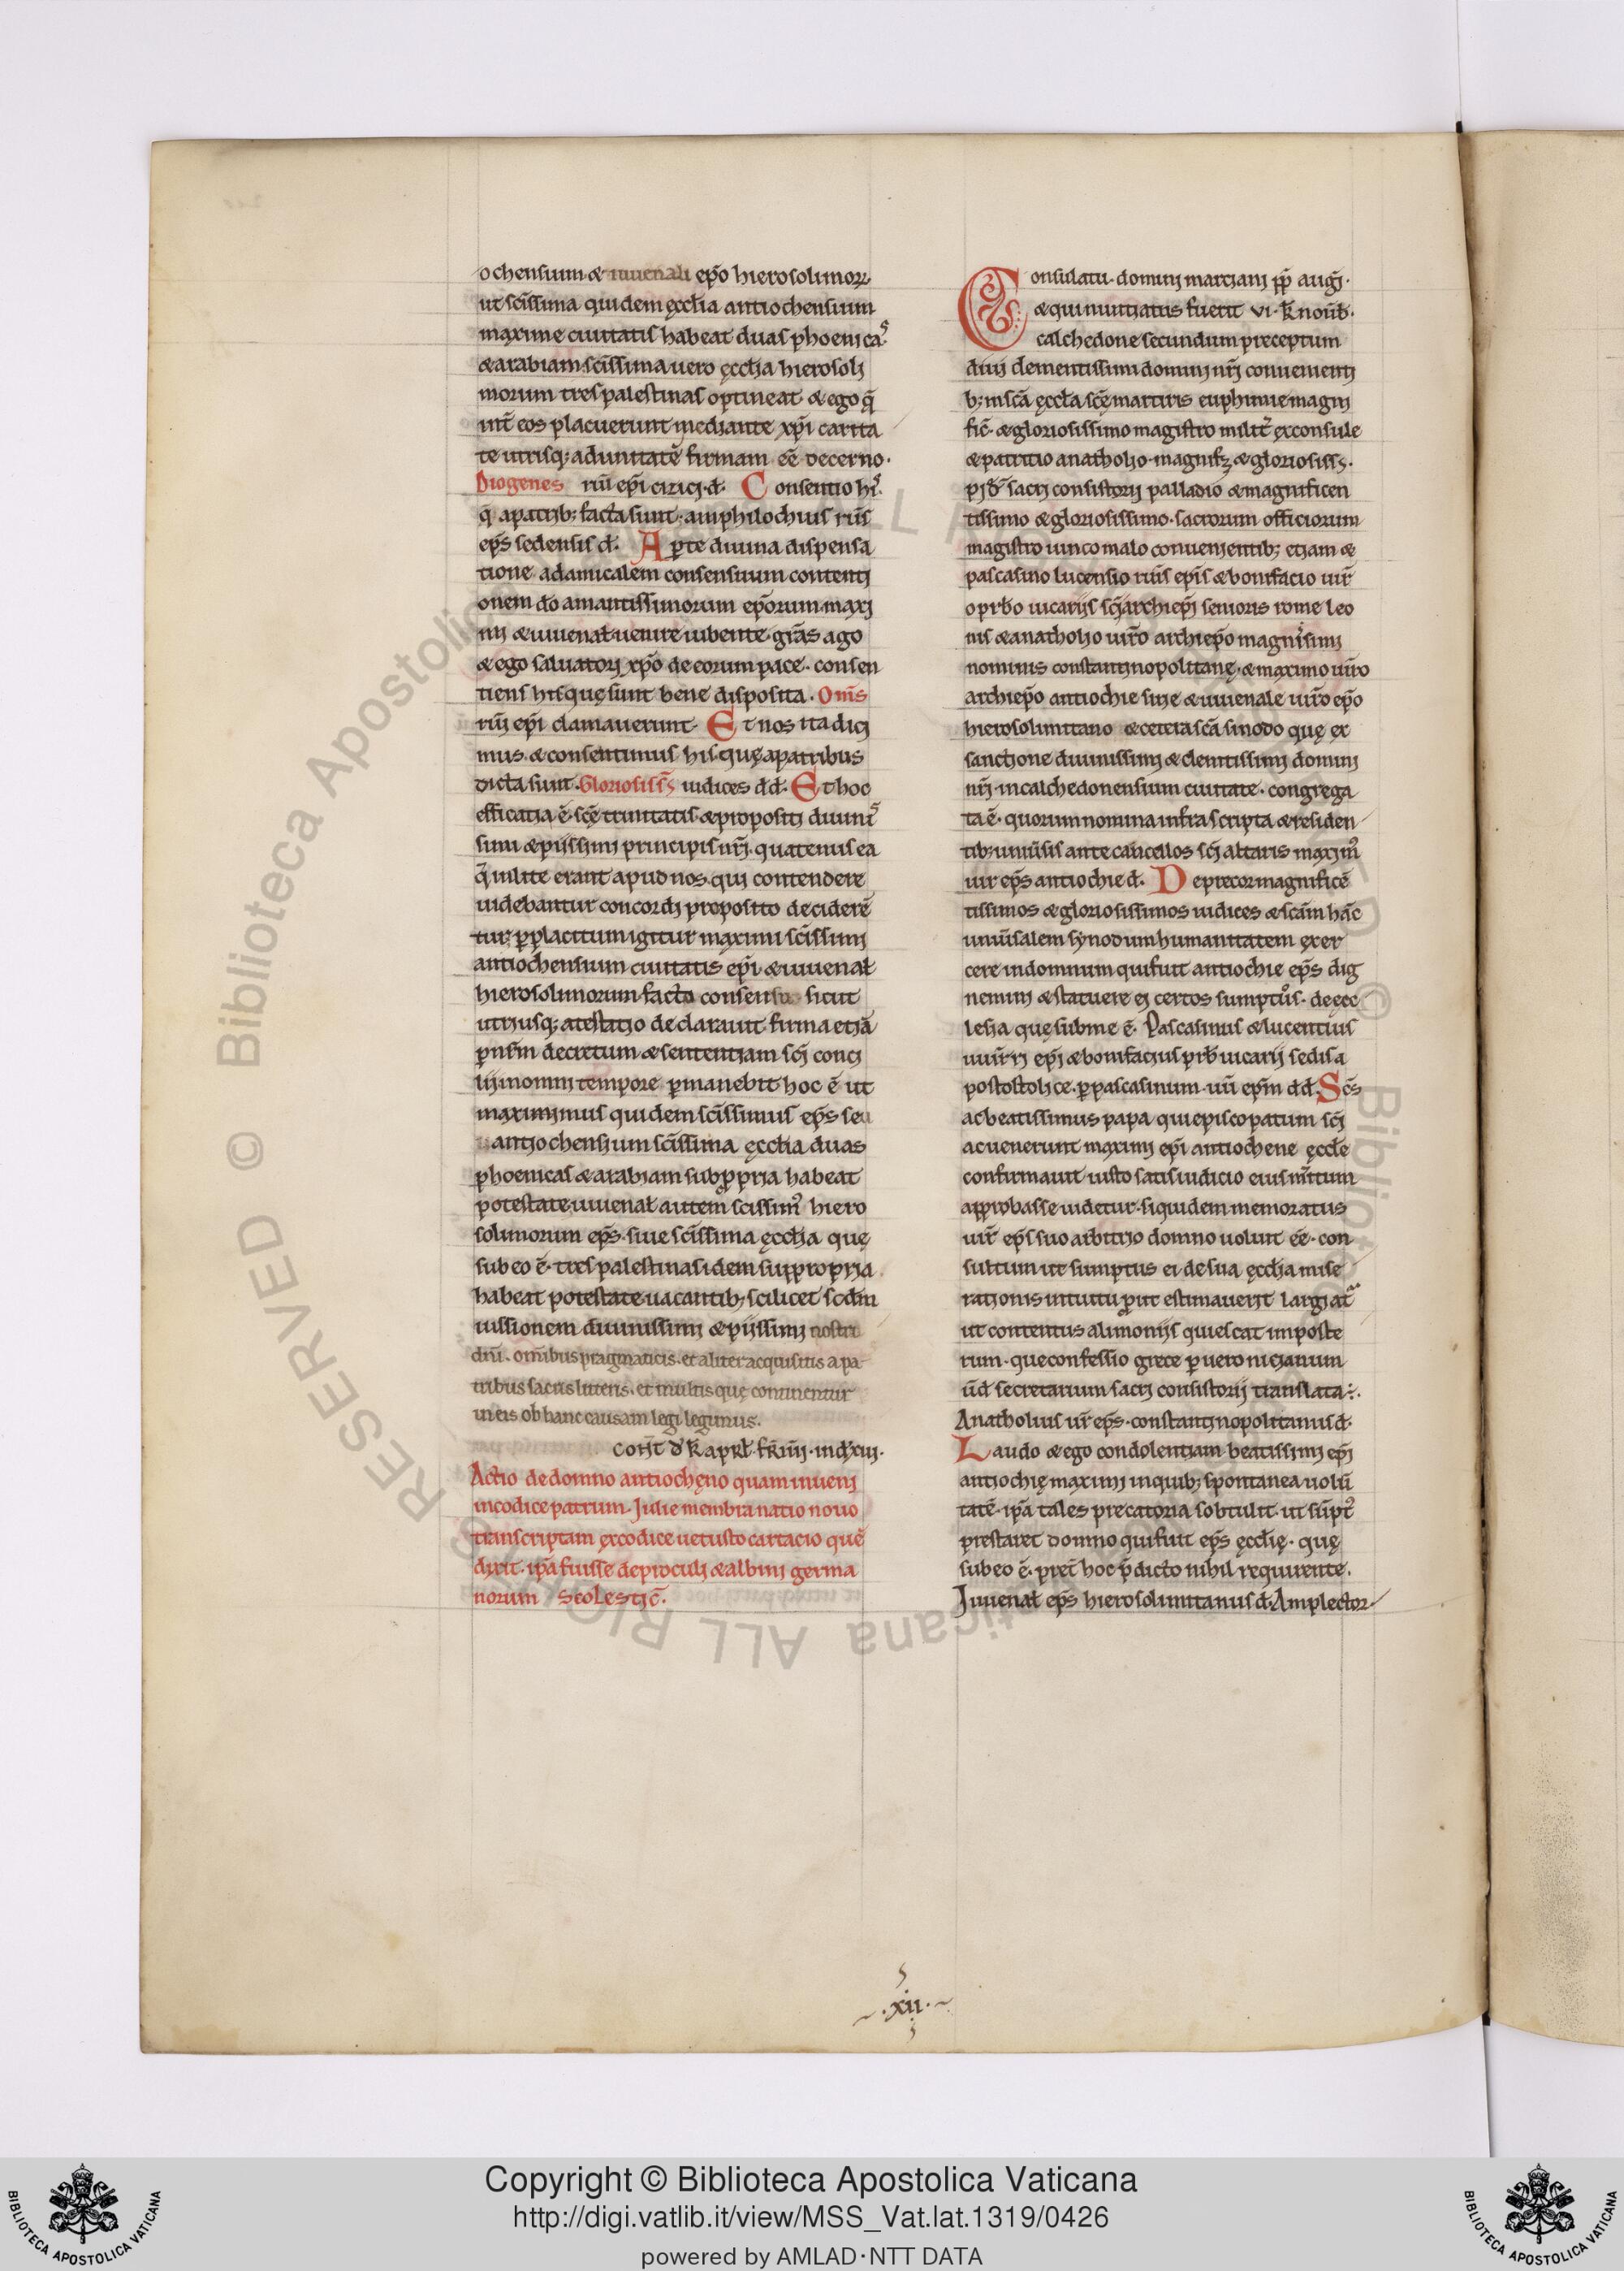 ochensium & iuuenali ep̄o hierosolimoꝝ
ut sc̄issima quidem ęccl̄ia antiochensium
maxime ciuitatis habeat duas phoenicaˢ
& arabiam sc̄issima uero ęccl̄ia hierosoli
morum tres palestinas optineat & ego q̄
int̄ eos placuerunt mediante xp̄i carita
te utrisq; ad unitatē firmam eē decerno.
Diogenes rūi ep̄i cizici .d. Consentio hiˢ
q̄ a patrib; facta sunt. amphilochius rūs
ep̄s sedensis d. Aperte diuina dispensa
tione ad amicalem consensuum contenti
onem do amantissimorum ep̄orum maxi
mi & iuuenal uenire iubente. grās ago
& ego saluatori xp̄o de eorum pace. consen
tiens his quę sunt bene disposita. Om̄s
rūi ep̄i clamauerunt. Et nos ita dici
mus. & consentimus his quę a patribus
dicta sunt. Gloriosiss̄ iudices dd. Et hoc
efficatia ē. sc̄ę trinitatis. & propositi diuiniˢ
simi & piissimi principis nr̄i. quatenus ea
q̄ in lite erant apud nos. qui contendere
uidebantur concordi proposito deciderē
tur. ꝑ placitum igitur maximi sc̄issimi
antiochensium ciuitatis ep̄i & iuuenal
hierosolimorum facto consensu sicut
utriusq; atestatio declarauit. firma etiā
ꝑ nr̄m decretum & sententiam sc̄i conci
lii in omni tempore ꝑmanebit hoc ē ut
maximimus quidem sc̄issimus ep̄s seu
antiochensium sc̄issima ęccl̄ia duas
phoenicas & arabiam sub ꝓpria habeat
potestate. iuuenal autem sc̄issim᾽ hiero
solimorum ep̄s. siue sc̄issima ęccl̄ia quę
sub eo ē. tres palestinas idem su propria
habeat potestate. uacantib; scilicet sc̄dm
iussionem diuinissimi & piissimi nostri
dn̄i. om̄ibus pragmaticis. et aliter acquisitis a pa
tribus sacris litteris. et multis quę continentur
in eis ob hanc causam legi legimus.
CONT̄ d k apr̄l. fr̄. iiii. ind. xiii.
Actio de domno antiochęno quam inueni
in codice patrum. Iulie membranatio nouo
transcriptam ęx codice uetusto cartacio quē
dixit. ip̄a fuisse de proculi & albini germa
norum scolestic̄.
Consulatu. domini marciani pp̄ auḡ.
& qui nuntiatus fuerit VI. k noūb.
calchedone secundum preceptum
diui clementissimi domini nr̄i conuenienti
b; in sc̄a ęccl̄a sc̄ę martiris euphimie magni
fic̄. & gloriosissimo magistro milit̄ ęx consule
& patritio anatholio. magnifꝫ & gloriosiss.
sacri consistorii palladio & magnificen
tissimo & gloriosissimo. sacrorum officiorum
magistro uincomalo conuenientib; etiam &
pascasino lucensio rūis ep̄is & bonifacio uir̄
o prb̄o uicariis sc̄i archiep̄i senioris rome leo
nis & anatholio uir̄o archiep̄o magnisimi
nominis constantinopolitanę. & maximo uir̄o
archiep̄o antiochie sirie & iuuenale uir̄o ep̄o
hierosolimitano & cetera sc̄a sinodo quę ex
sanctione diuinissimi & clemtissimi domini
nr̄i. in calchedonensium ciuitate. congrega
ta ē. quorum nomina infra scripta & residen
tib; uniūsis ante cancellos sc̄i altaris maxim᾽
uir ep̄s antiochie d. Deprecor magnificē
tissimos & gloriosissimos iudices & sc̄am hāc
uniūsalem synodum humanitatem ęxer
cere in domnum qui fuit antiochie ep̄s dig
nemini & statuere ei certos sumptus. de ęcc
lesia quę sub me ē. Pascasinus & lucentius
uiir̄ri ep̄i & bonifacius prb̄ uicarii sedis a
postostolice. ꝑ pascasinum. uū ep̄m dd. Sc̄s
ac beatissimus papa qui episcopatum sc̄i
ac uenerunt maximi ep̄i antiochene ęccl̄e
confirmauit iusto satis iudicio eius m̄itum
approbasse uidetur. siquidem memoratus
uir̄ ep̄s suo arbitrio domno uoluit eē. con
sultum ut sumptus ei de sua ęccl̄ia mise
rationis intuitu ꝓut estimauerit largiat᷑
ut contentus alimoniis quiescat in poste
rum. que confessio grece ꝑ ueronicianum
ūd secretarium sacri consistorii translata:.
Anatholius ur̄ ep̄s. constantinopolitanus d.
Laudo & ego condolentiam beatissimi ep̄i
antiochię maximi in quib; spontanea uolū
tatē. ip̄a tales precatoria sobtulit. ut sūpt᾽
prestaret domno qui fuit ep̄s ęccl̄ię. quę
sub eo ē. pret̄ hoc p̄dicto nihil requirente.
Iuuenal ep̄s hierosolimitanus d. Amplector
.xii.
Copyright © Biblioteca Apostolica Vaticana
http://digi.vatlib.it/view/MSS_Vat.lat.1319/0426
powered by AMLAD·NTT DATA
BIBLIOTECA APOSTOLICA VATICANA
BIBLIOTECA APOSTOLICA VATICANA